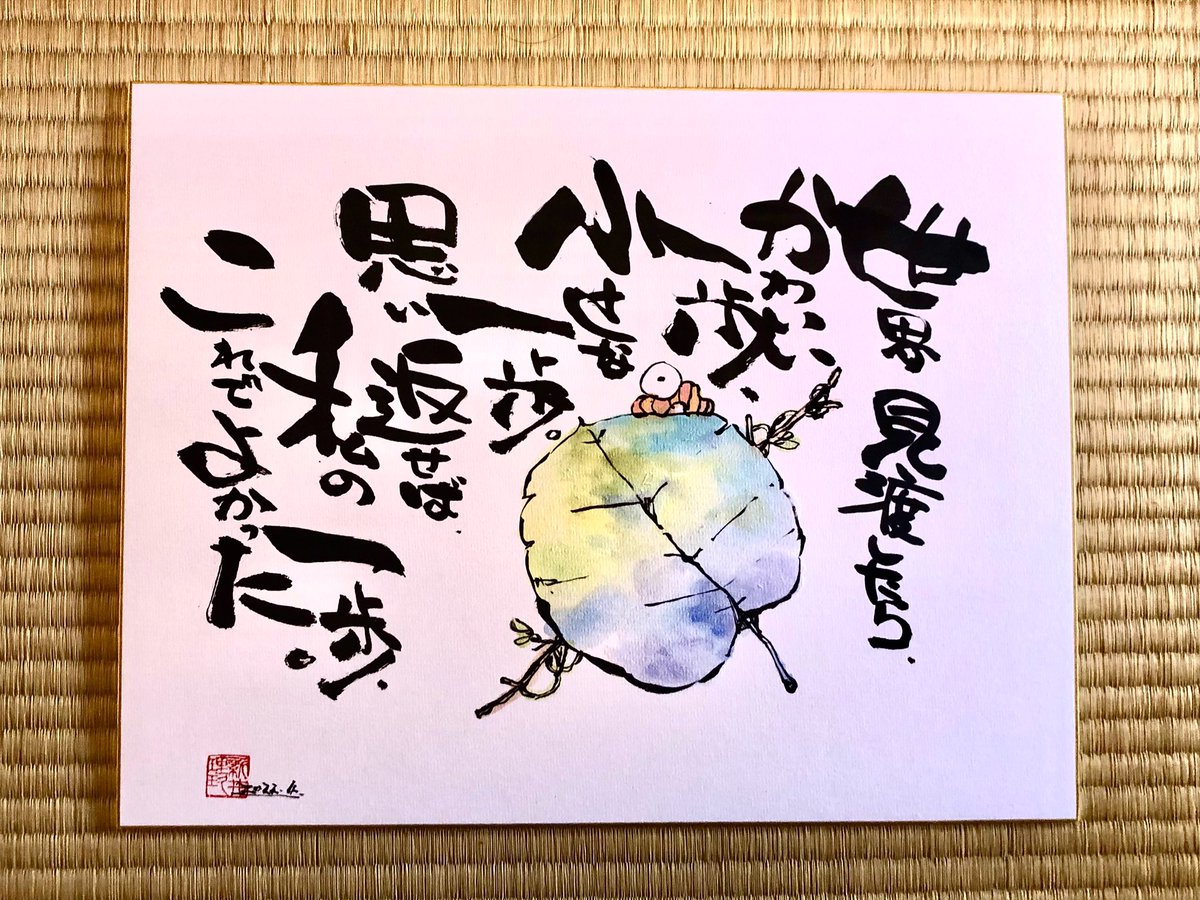 世界見渡したら
かわいい
一歩、
小さな
一歩。
思い返せば
私の一歩、
これでよかった。